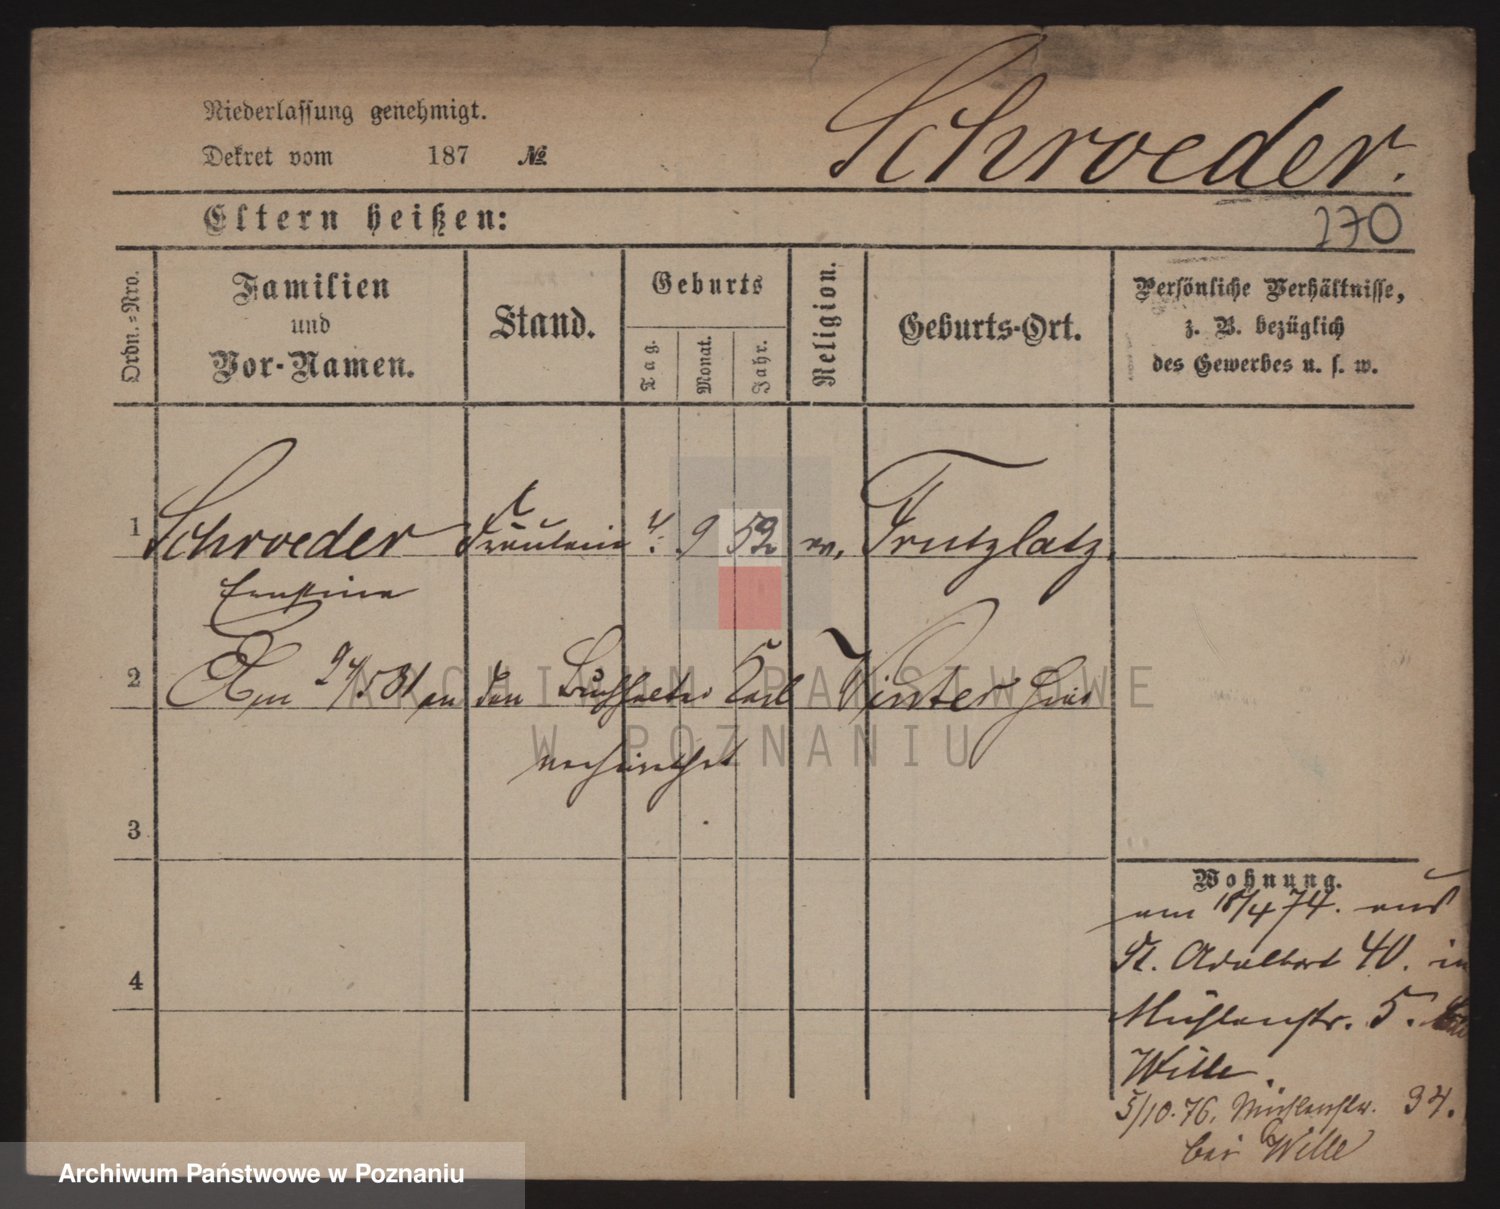 Schroeder.
Niederlassung genehmigt.
Dekret vom 187 №
Eltern heißen:
270
Ordn.-Nro.
Familien
und
Vor-Namen.
Stand.
Geburts
Tag.
Monat.
Jahr.
Religion.
Geburts-Ort.
Persönliche Verhältnisse,
z. B. bezüglich
des Gewerbes u. s. w.
1 Schroeder Fräulein 4. 9 52 ev. Trutzlatz.
Ernstine
2 Am 81 an den Buchhalter Carl Winter hier
verheirathet
3
Wohnung.
am 18/4 74. aus
St. Adalbert 40. in
4
Mühlenstr. 5.
Wille.
5/10. 76. Mühlenstr. 34.
bei Wille
ARCHIWUM PAŃSTWOWE
W POZNANIU
Archiwum Państwowe w Poznaniu